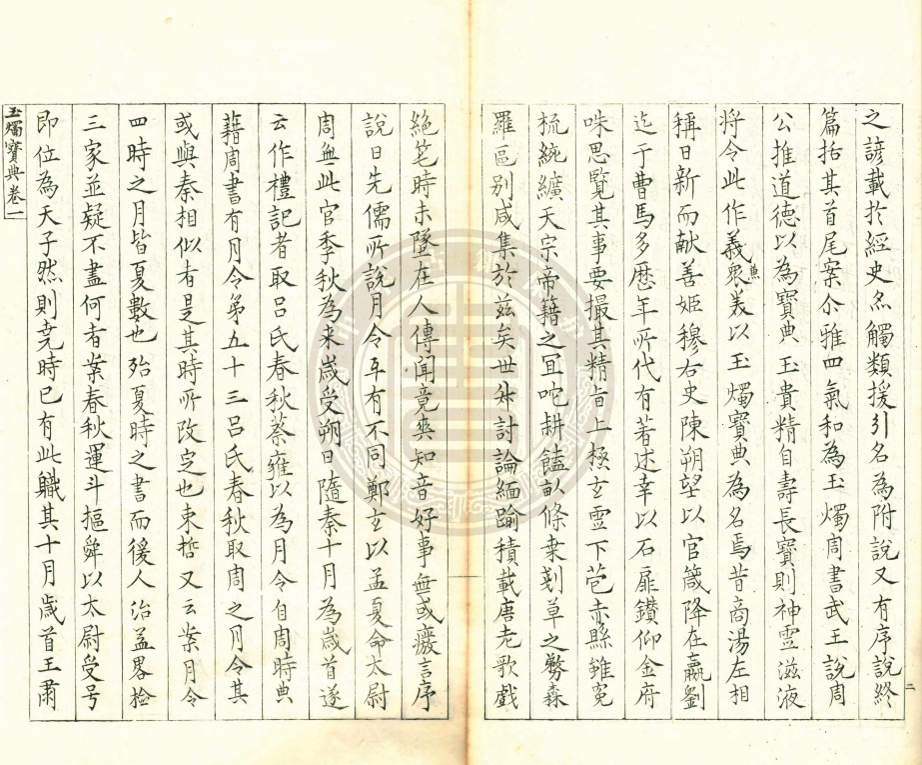 之諺載扵經史㸃觸類援引名為附說又有序說終
篇括其首尾案尒雅四氣和為玉燭周書武王說周
公推道德以為寶典玉貴精自壽長寶則神霊滋液
將令此作義衆義以玉燭寶典為名焉昔商湯左相
無
稱日新而献善姫穆右史陳朔望以官箴降在嬴劉
迄于曹馬多厯年所代有著述幸以石扉鑚仰金府
咮思覧其事要撮其精旨上極玄霊下苞赤縣雖冕
梳統纊天宗帝籍之冝咜耕饁畝條桒剗草之務森
羅區别咸集於兹矣世外討論緬踰積載唐老歌戯
絶笔時未墜在人傳聞竟爽知音好事無或癈言序
說曰先儒所說月令互有不同鄭玄以孟夏命太尉
周無此官季秋為来歲受朔日隨秦十月為歲首遂
云作禮記者取吕氏春秋蔡雍以為月令自周時典
籍周書有月令第五十三吕氏春秋取周之月令其
或與秦相似者是其時所改定也束晢又云案月令
四時之月皆夏數也殆夏時之書而後人治益畧捡
三家並疑不盡何者案春秋運斗樞舜以太尉受号
即位為天子然則尭時已有此職其十月歲首王肅
玉燭寶典卷一
二